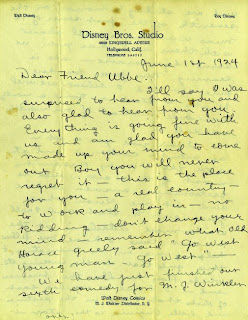 Walt Disney
Roy Disney
Disney Bros. Studio
4649 KINGSWELL AVENUE
Hollywood, Calif.
TELEPHONE
June 1st 1924
Dear Friend Ubbe.
I'll say I was
surprised to hear from you and
also glad to hear from you
Everything is going fine with
us and am glad you have
made up your mind to come
out Boy you will never
regret it — this is the place
for you — a real country —
to work and play in — no
Kidding — don't change your
mind — remember what old
Horace greely said "Go west
young man Go West" —
We have just finished our
sixth comedy for M. J. Winkler
Walt Disney Comics
M. J. Winkler Distributor, N. Y.